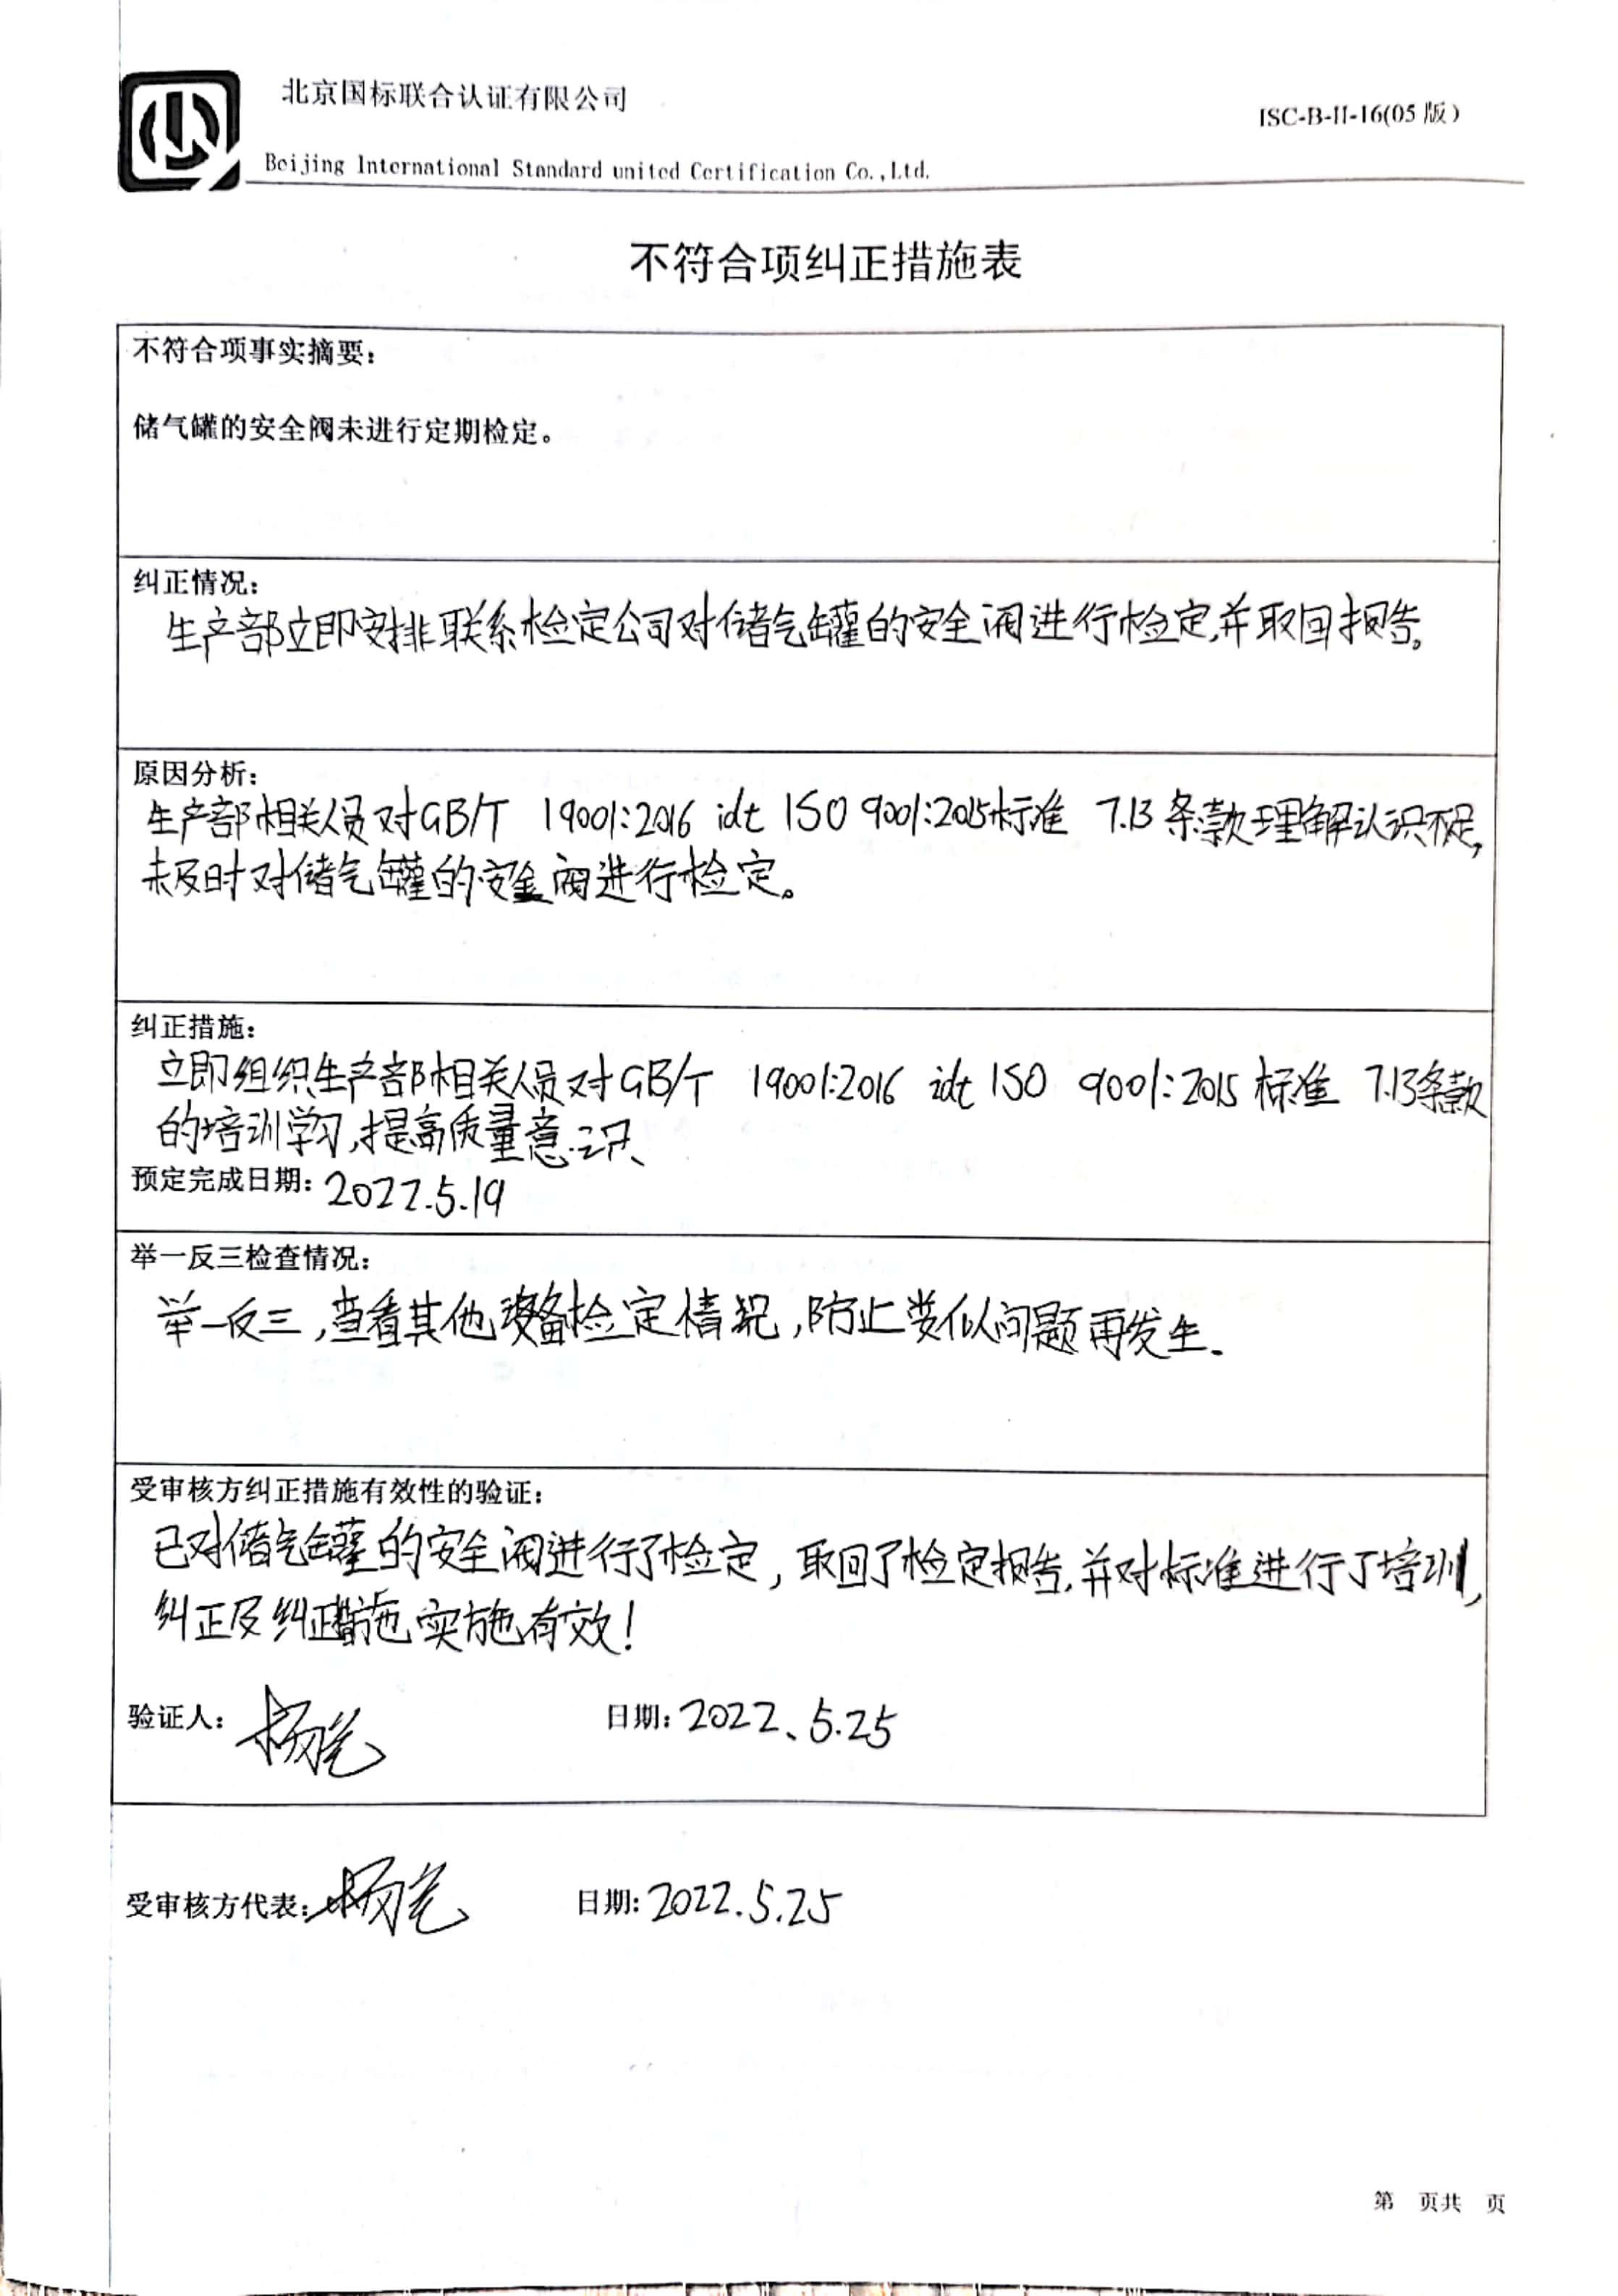 北京国标联合认证有限公司
ISC-B-II-16(05版)
Beijing International Standard united Certification Co.,Ltd.
不符合项纠正措施表
不符合项事实摘要:
储气罐的安全阀未进行定期检定。
纠正情况:
生产部立即安排联系检定公司对储气罐的安全阀进行检定,并取回报告。
原因分析:
生产部相关人员对GB/T 19001:2016 idt ISO 9001:2015标准 7.1.3条款理解认识不足,
未及时对储气罐的安全阀进行检定。
纠正措施:
立即组织生产部相关人员对GB/T 19001:2016 idt ISO 9001:2015标准 7.1.3条款
的培训学习,提高质量意识
预定完成日期: 2022.5.19
举一反三检查情况:
举一反三,查看其他设备检定情况,防止类似问题再发生.
受审核方纠正措施有效性的验证:
已对储气罐的安全阀进行了检定,取回了检定报告,并对标准进行了培训,
纠正及纠正措施实施有效!
验证人: 日期: 2022、5.25
受审核方代表: 日期: 2022.5.25
第 页共 页